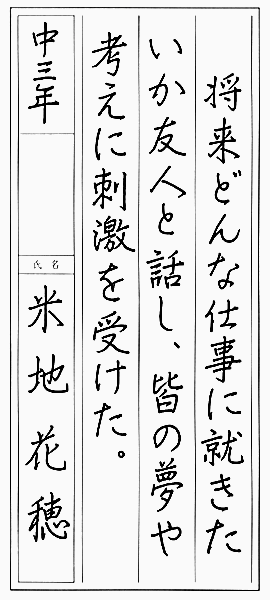 将来どんな仕事に就きた
いか友人と話し、皆の夢や
考えに刺激を受けた。
中三年
氏名
米地花穂